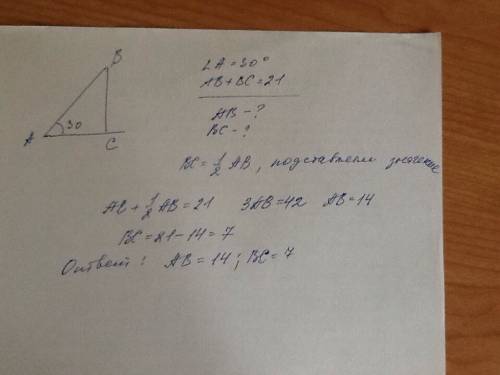 B
A 30 C
∠A = 30°
AB + BC = 21
AB - ?
BC - ?
BC = 1/2 AB, подставляем значение
AB + 1/2 AB = 21 3AB = 42 AB = 14
BC = 21 - 14 = 7
Ответ: AB = 14; BC = 7